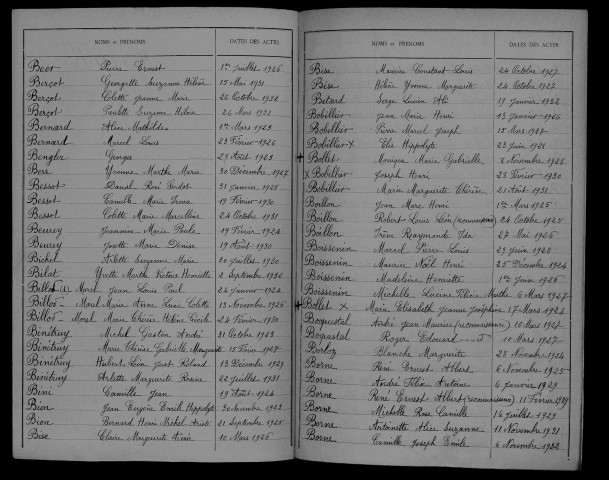 NOMS et PRÉNOMS DATES DES ACTES
Beer Pierre Ernest 1er Juillet 1926
Berçot Georgette Suzanne Hélène 15 Mai 1931
Berçot Colette Jeanne Marie 26 Octobre 1932
Berçot Paulette Suzanne Hélène 26 Mars
Bernard Alice Mathilde 1er Mars 1923
Bernard Marcel Louis 23 Février 1926
Bengler Georges 28 Août 1923
Bere Yvonne Marthe Marie 30 Décembre 1927
Bessot Daniel René 31 Janvier 1928
Bessot Camille Marie Irma 19 Février 1930
Bessot Colette Marie Marcelline 24 Octobre 1931
Beurey Jeannine Marie Paule 19 Février 1924
Beurey Josette Marie Denise 19 Août 1930
Bichet Arlette Suzanne Marie 30 Juillet 1930
Bilat Yvette Marthe Victoire Henriette 2 Septembre 1930
Billod Morel Jean Louis Paul 24 Janvier 1924
Billod Morel Marie Anne Lucie Colette 13 Novembre 1926
Billod Morel Marie Thérèse Hélène Cécile 24 Février 1930
Bénétruy Michel Gaston André 31 Octobre 1923
Bénétruy Marie Thérèse Gabrielle Marguerite 15 Février 1927
Bénétruy Hubert Léon Just Roland 13 Décembre 1929
Bénétruy Arlette Marguerite Rosine 22 Juillet 1931
Bini Camille Jean 19 Août 1924
Bion Jean Eugène Emile Hippolyte 30 Novembre 1923
Bion Bernard Henri Michel 21 Septembre 1925
Bise Claire Marguerite Aimée 10 Mars 1926
NOMS et PRÉNOMS DATES DES ACTES
Bise Maurice Constant Louis 24 Octobre 1927
Bise Hélène Yvonne Marguerite 24 Octobre 1927
Bitard Serge Lucien 19 Janvier 1932
Bobillier Jean Marie Henri 13 Janvier 1926
Bobillier Pierre Marcel Joseph 15 Mars 1927
Bobillier x Elie Hippolyte 23 Juin 1928
+ Bollet Monique Marie Gabrielle 8 Novembre 1928
x Bobillier Joseph Henri 28 Février 1930
Bobillier Marie Marguerite Thérèse 21 Août 1931
Boillon Jean Marc Henri 1er Mars 1925
Boillon Robert Louis Léon (reconnaissance) 24 Octobre 1925
Boillon Irène Raymonde Ida 27 Mai 1926
Boissenin Marcel Pierre Louis 29 Juin 1928
Boissenin Maurice Noël Henri 25 Décembre 1924
Boissenin Madeleine Henriette 1er Juin 1926
Boissenin Michelle Lucine Marthe 6 Mars 1927
+ Bollet x Marie Elisabeth Jeanne Joséphine 17 Mars 1924
Boquestal André Jean Maurice (reconnaissance) 10 Mars 1927
Boquestal Roger Edouard 10 Mars 1927
Borloz Blanche Marguerite 28 Novembre 1924
Borne René Ernest Albert 6 Novembre 1925
Borne André Félix Antoine 6 Janvier 1929
Borne René Ernest Albert (reconnaissance) 11 Février 1929
Borne Michelle Rose Camille 16 Juillet 1929
Borne Antoinette Alice Suzanne 11 Novembre 1931
Borne Camille Joseph Emile 6 Novembre 1932